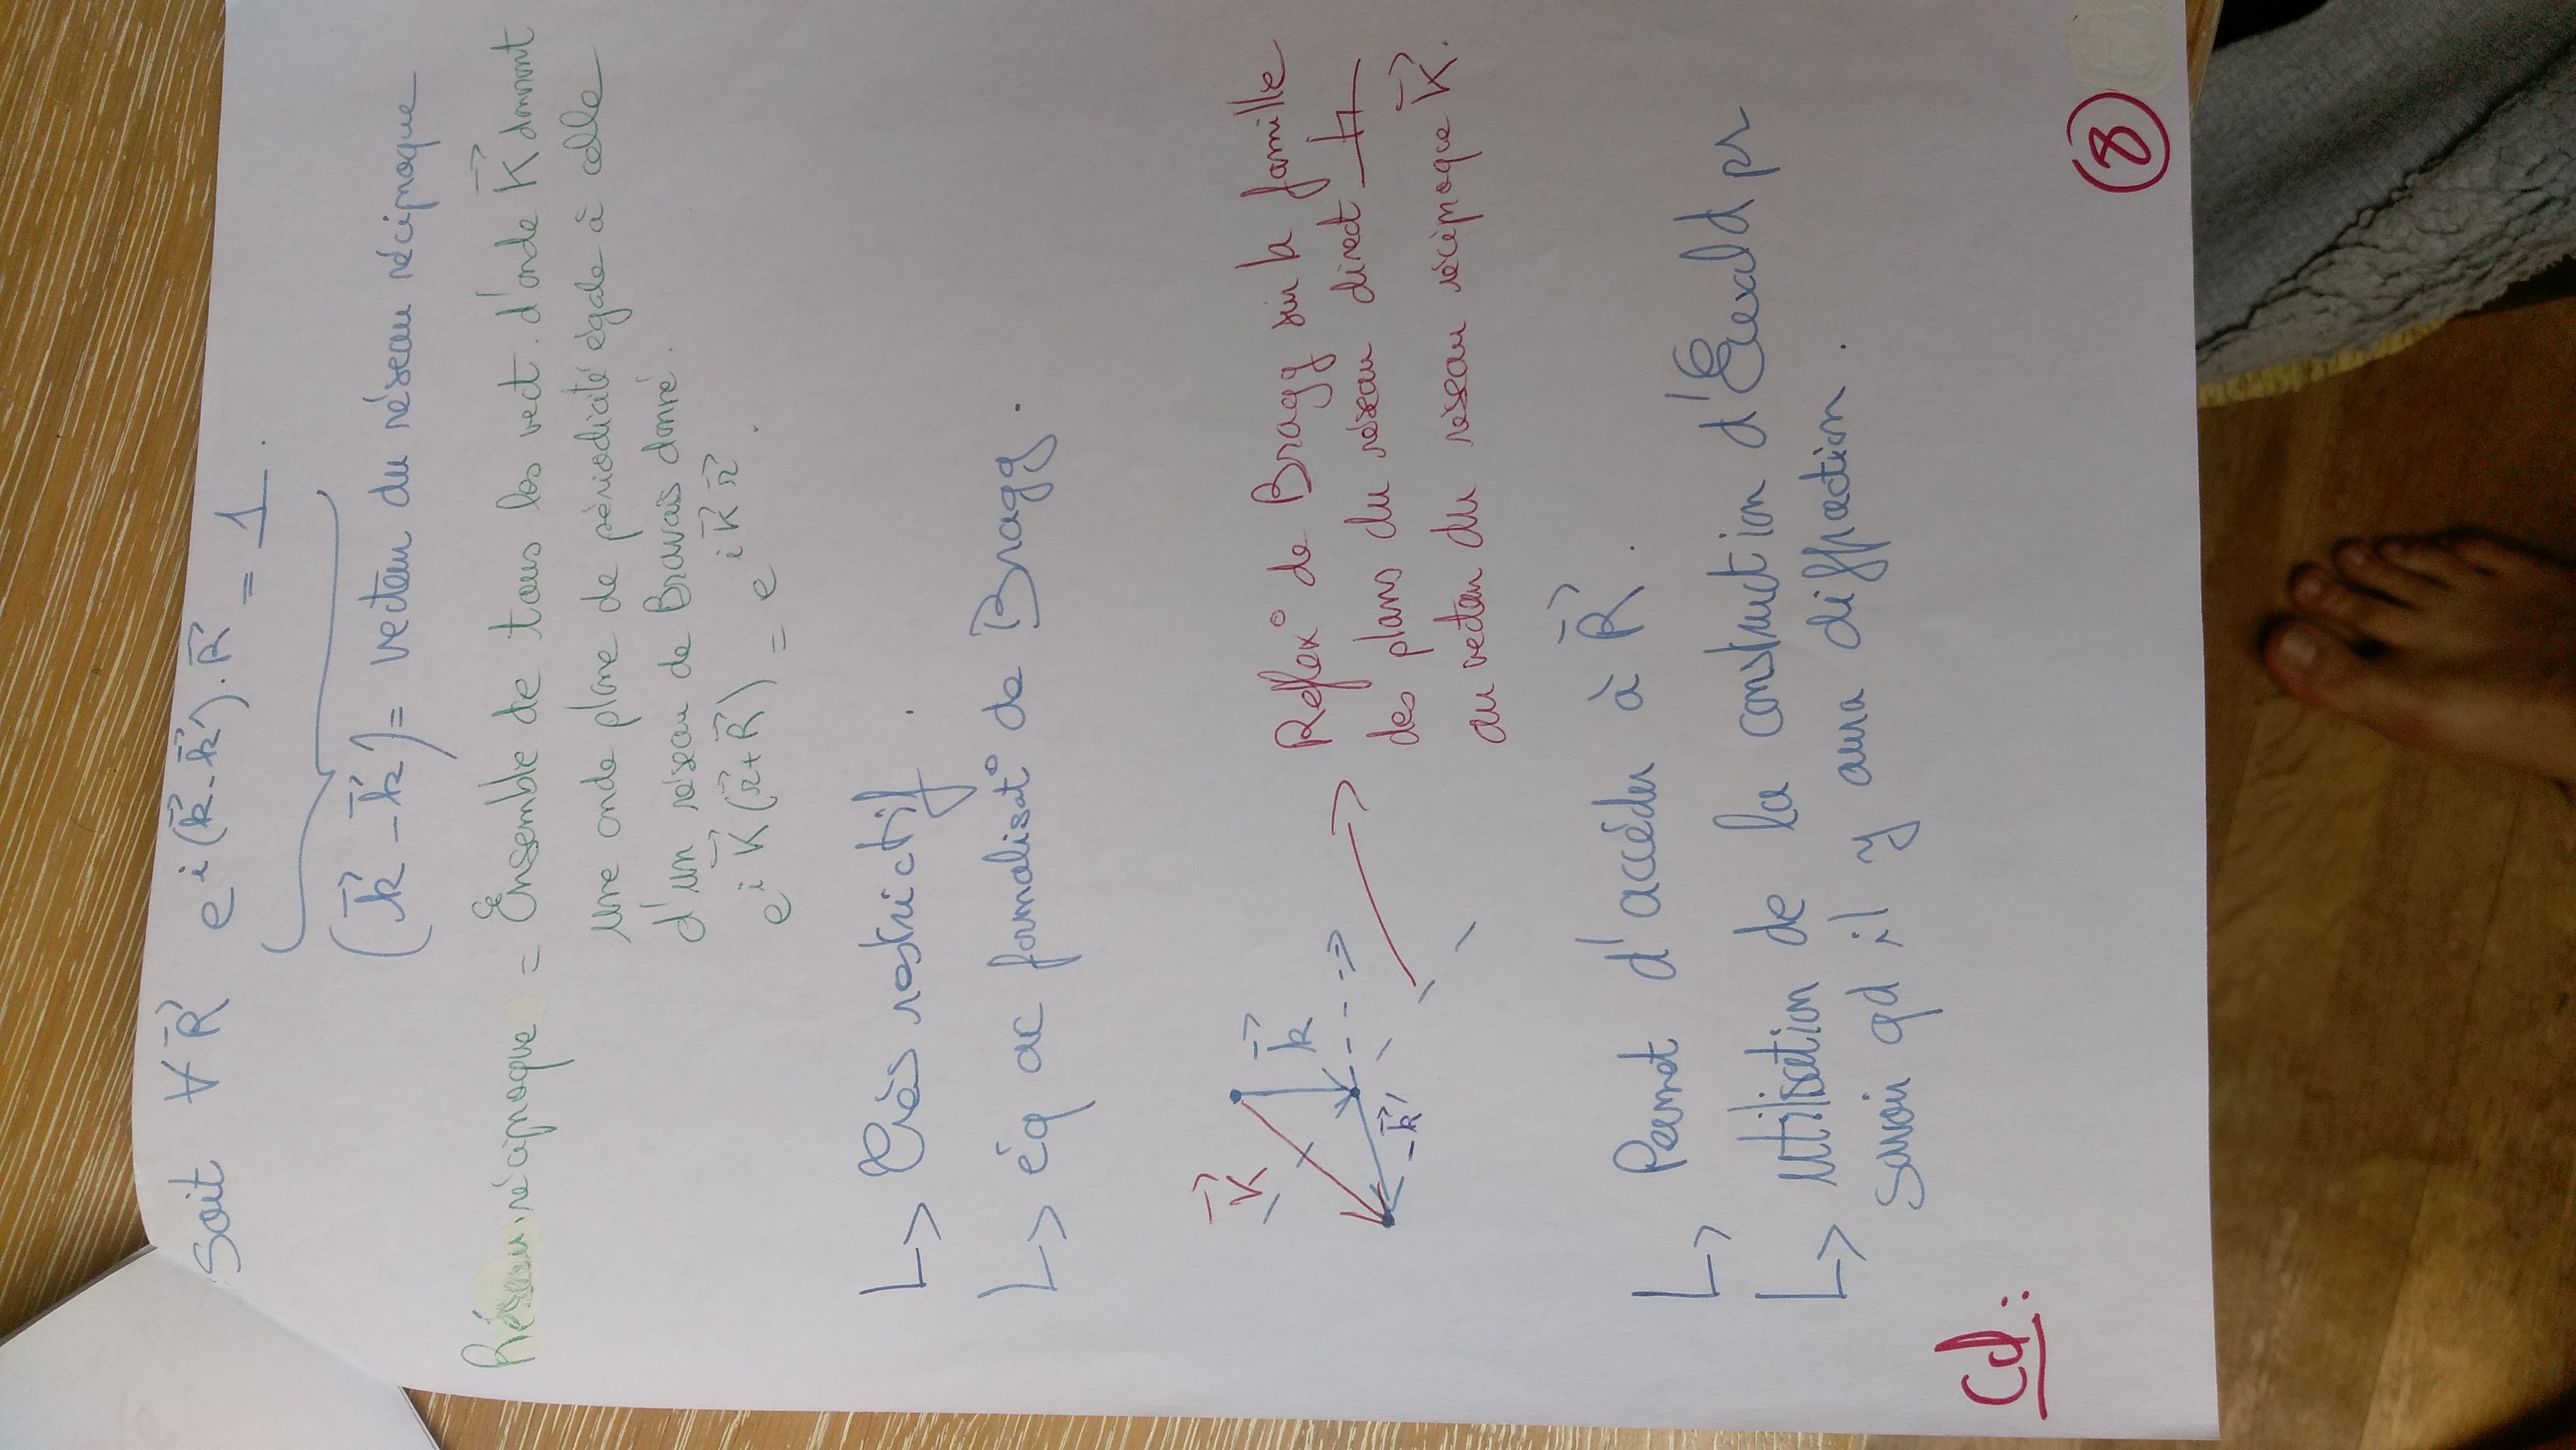 Soit ∀ R⃗ e^{i(k⃗-k⃗').R⃗} = 1.
(k⃗-k⃗') = vecteur du réseau réciproque
Réseau réciproque = Ensemble de tous les vect. d'onde K⃗ donnant
une onde plane de périodicité égale à celle
d'un réseau de Bravais donné.
e^{iK⃗(r⃗+R⃗)} = e^{iK⃗r⃗}.
↳ Très restrictif.
↳ éq ac formalisat° de Bragg.
K⃗
k⃗
-k⃗'
Réflex° de Bragg sur la famille
des plans du réseau direct
au vecteur du réseau réciproque K⃗.
↳ Permet d'accéder à R⃗.
↳ utilisation de la construction d'Ewald pr
savoir qd il y aura diffraction.
Ccl:
8